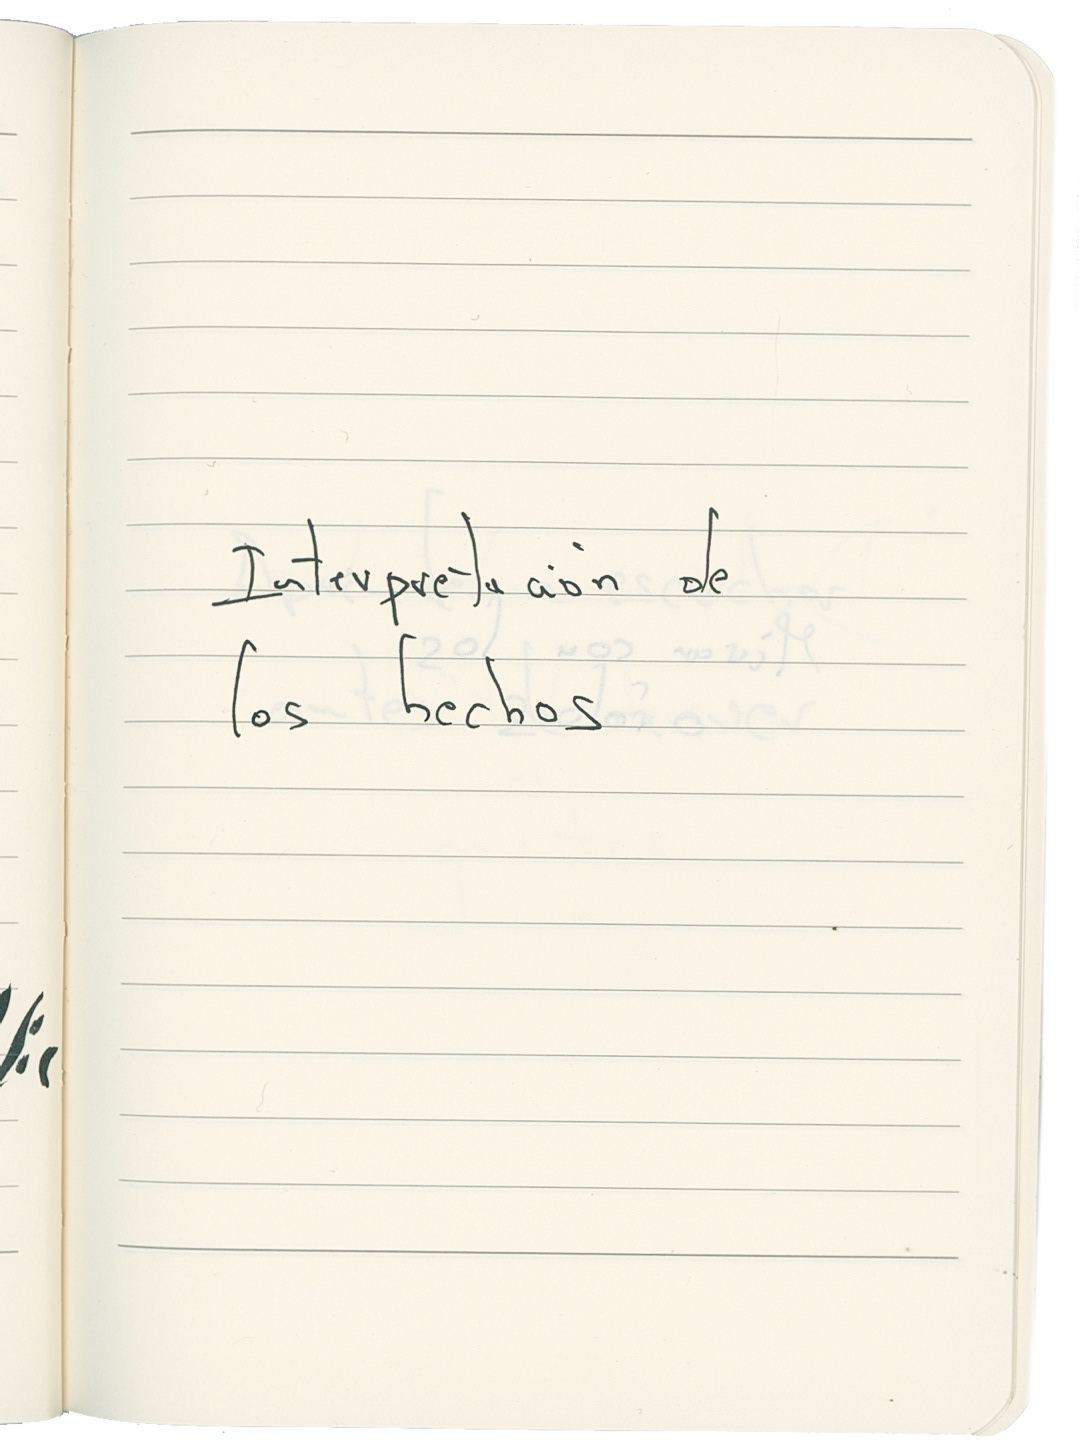 Interpretación de
los hechos